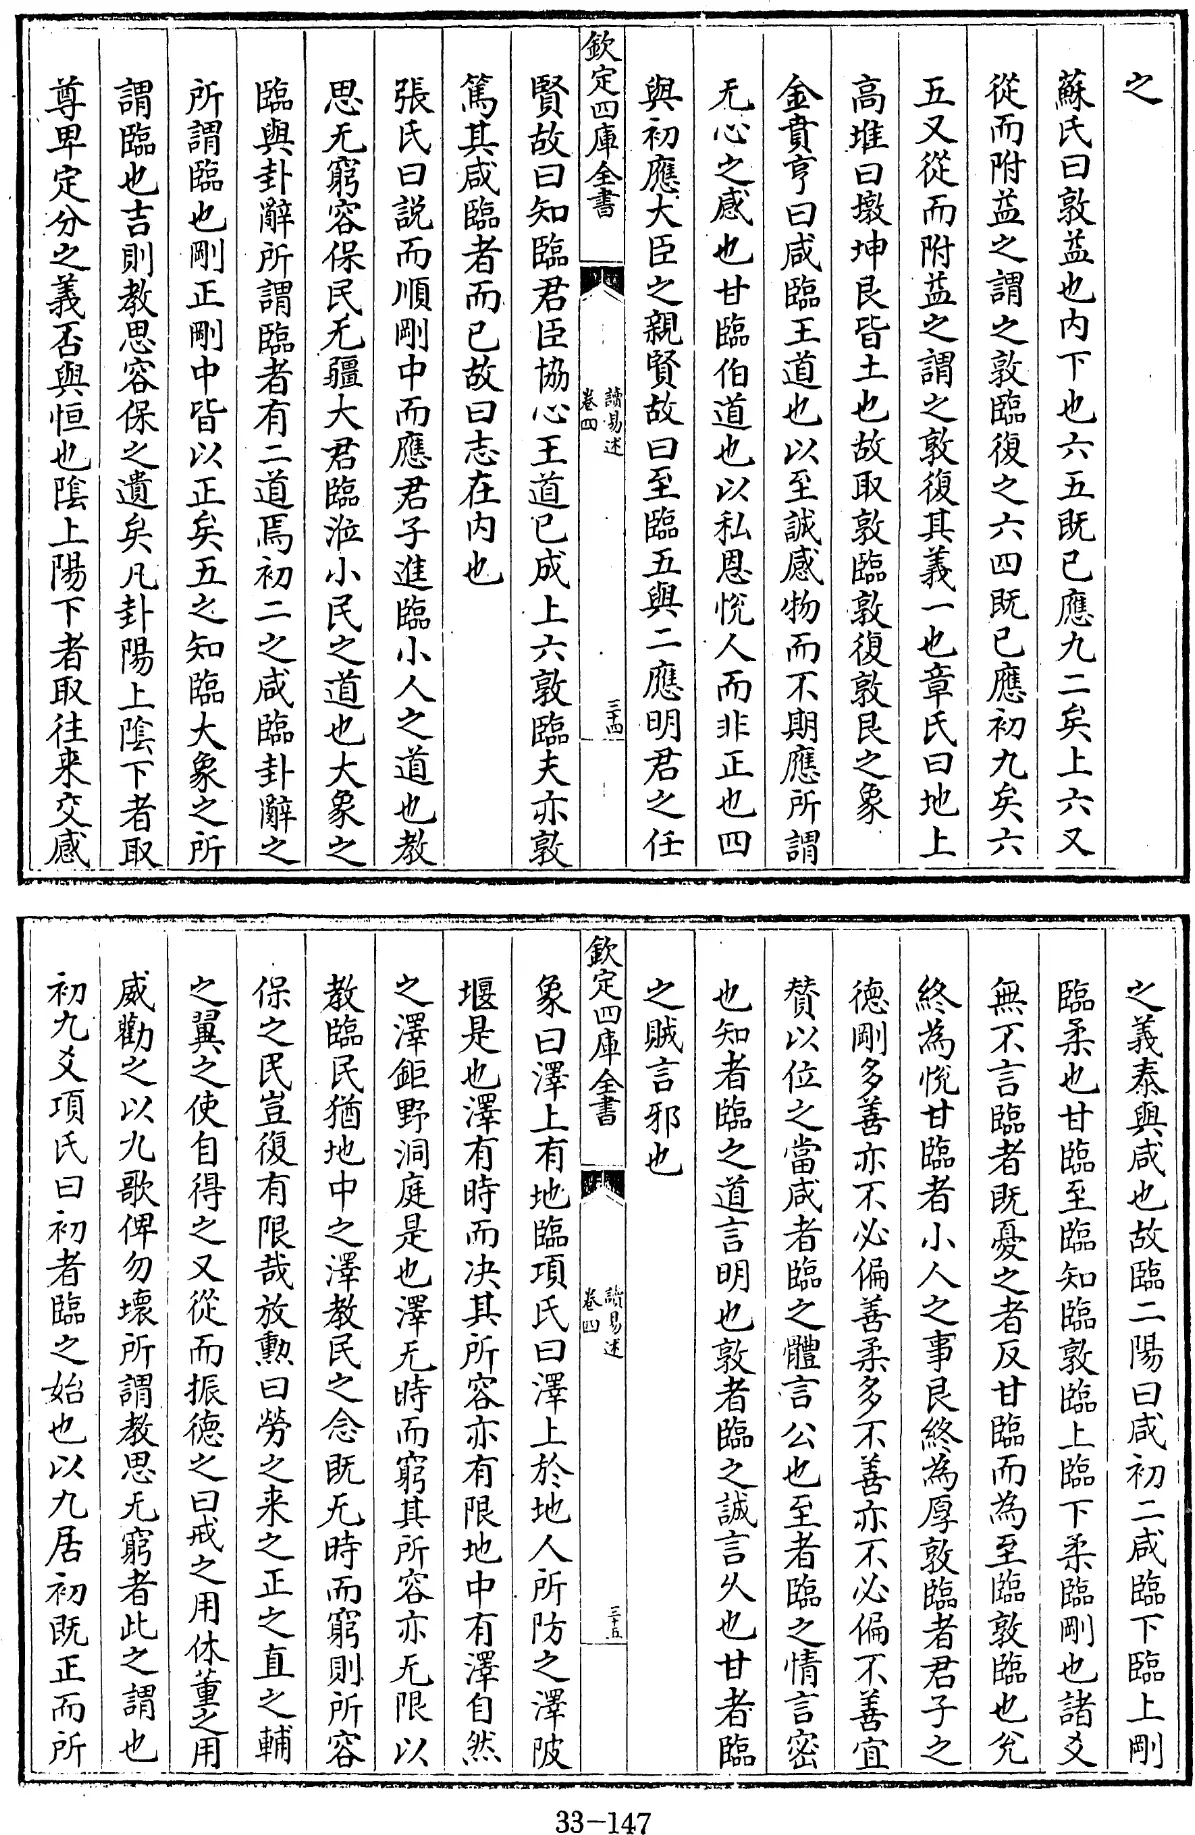 之
蘇氏曰敦益也内下也六五既已應九二矣上六又
從而附益之謂之敦臨復之六四既已應初九矣六
五又從而附益之謂之敦復其義一也章氏曰地上
高堆曰墩坤艮皆土也故取敦臨敦復敦艮之象
金賁亨曰咸臨王道也以至誠感物而不期應所謂
无心之感也甘臨伯道也以私恩悦人而非正也四
與初應大臣之親賢故曰至臨五與二應明君之任
欽定四庫全書
讀易述
卷四
三十四
賢故曰知臨君臣協心王道已成上六敦臨夫亦敦
篤其咸臨者而已故曰志在内也
張氏曰説而順剛中而應君子進臨小人之道也教
思无窮容保民无疆大君臨涖小民之道也大象之
臨與卦辭所謂臨者有二道焉初二之咸臨卦辭之
所謂臨也剛正剛中皆以正矣五之知臨大象之所
謂臨也吉則教思容保之遺矣凡卦陽上陰下者取
尊卑定分之義否與恒也陰上陽下者取往来交感
之義泰與咸也故臨二陽曰咸初二咸臨下臨上剛
臨柔也甘臨至臨知臨敦臨上臨下柔臨剛也諸爻
無不言臨者既憂之者反甘臨而為至臨敦臨也兊
終為悦甘臨者小人之事艮終為厚敦臨者君子之
德剛多善亦不必偏善柔多不善亦不必偏不善宜
賛以位之當咸者臨之體言公也至者臨之情言密
也知者臨之道言明也敦者臨之誠言久也甘者臨
之賊言邪也
欽定四庫全書
讀易述
卷四
三十五
象曰澤上有地臨項氏曰澤上於地人所防之澤陂
堰是也澤有時而决其所容亦有限地中有澤自然
之澤鉅野洞庭是也澤无時而窮其所容亦无限以
教臨民猶地中之澤教民之念既无時而窮則所容
保之民豈復有限哉放勲曰勞之来之正之直之輔
之翼之使自得之又從而振德之曰戒之用休董之用
威勸之以九歌俾勿壞所謂教思无窮者此之謂也
初九爻項氏曰初者臨之始也以九居初既正而所
33-147